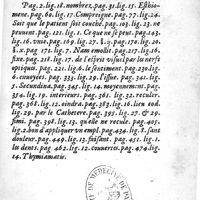 Pag.2.lig.18.nombrez,pag.31.lig.15.Esthio-
mene.pag.60.lig.17.Compreigne.pag.77.lig.24.
Soit que le patient soit couché.pag.103.lig.23.ne
peuuent.pag.121.lig.1. Ce que ne se peut.pag.103.
lig.16. vnie.pag.109.lig.27.
pag.170.lig.20.
x.pag.171.lig.7. Nam emollit.pag.217.lig.16.
fixe.pag.218.lig.17. de l'esprit visuel par les nerfs
optiques.pag.221.lig.6.le sentiment.pag.230.lig.
6.euuoyees.pag.333.lig.29.l'issue.pag.341.lig.
5.Secundina.pag.345.lig.14.moyennement.pag.
354.lig.29. interieurs.pag.362.lig.11.reculer.
pag.368.lig.12.oindra.pag.383.lig.16.lien
pag.391.lig.2. par le Cathetere.pag.395.lig.2.
fini.pag.398.lig.13. qu'elle ne recule.pag.405.
lig.2.bon d'appliquer vn empl.pag.434.lig.8.sans
douleur.pag.449.lig.13.fuisant.pag.451.lig.1.
la dent.pag.462.lig.12.couuertes.pag.474.lig.
14.Thymiamatis.
DE MEDECINE DE PA